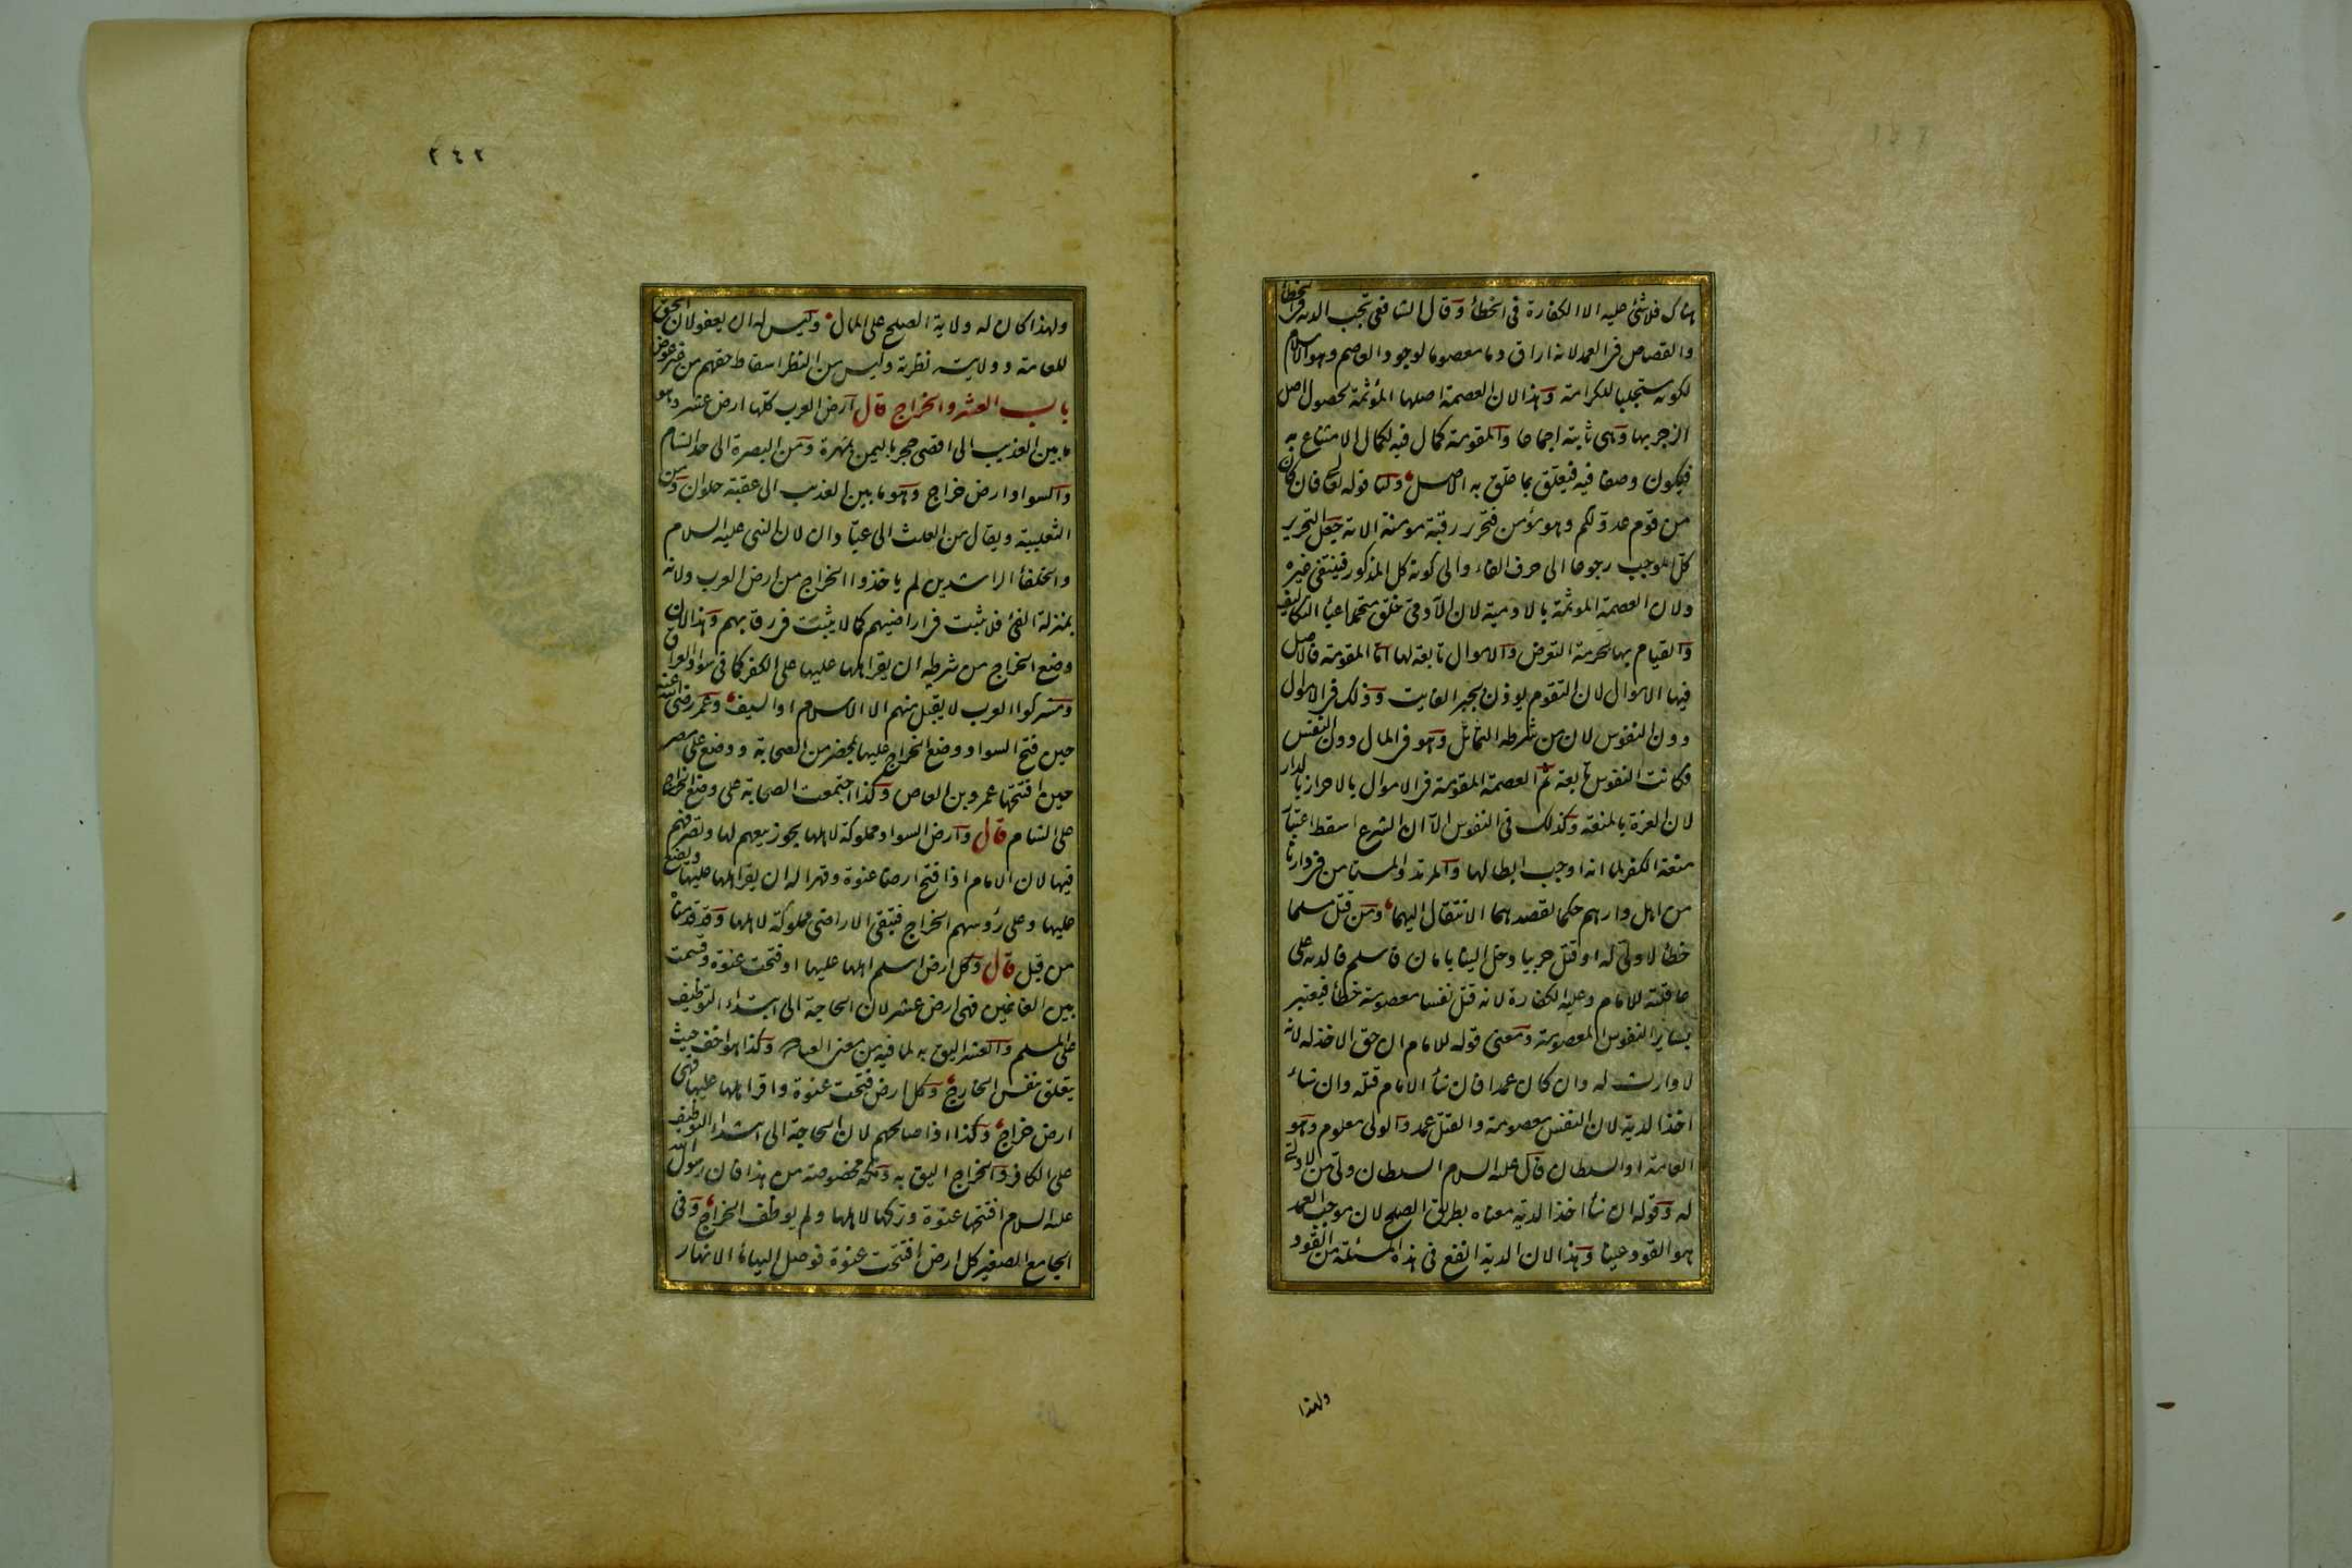 هناك فلا شئ عليه الا الكفارة فى الخطأ وقال الشافعى تجب الدية فى الخطأ
والقصاص فى العمد لانه اراق دما معصوما لوجود العاصم وهو الاسلام
لكونه مستجلبا للكرامة وهذا لان العصمة اصلها المؤثمة لحصول اصل
الزجر بها وهى ثابتة اجماعا والمقومة كمال فيه لكمال الامتناع به
فيكون وصفا فيه فيتعلق بما علق به الاصل ولنا قوله تعالى فان كان
من قوم عدو لكم وهو مؤمن فتحرير رقبة مؤمنة الاية جعل التحرير
كل الموجب رجوعا الى حرف الفاء والى كونه كل المذكور فينتفى غيره
ولان العصمة المؤثمة بالادمية لان الآدمى خلق متحملا اعباء التكاليف
والقيام بها بحرمة التعرض والاموال تابعة لها اما المقومة فالاصل
فيها الاموال لان التقوم يوذن بجبر الفايت وذلك فى الاموال
دون النفوس لان من شرطه التماثل وهو فى المال دون النفس
فكانت النفوس تابعة ثم العصمة المقومة فى الاموال بالاحراز بالدار
لان العزة بالمنعة وكذلك فى النفوس الا ان الشرع اسقط اعتبار
منعة الكفر لما انه اوجب ابطالها والمرتد والمستامن فى دارنا
من اهل دارهم حكما لقصدهما الانتقال اليها ومن قتل مسلما
خطأ لا ولى له او قتل حربيا دخل الينا بامان فاسلم فالدية على
عاقلته للامام وعليه الكفارة لانه قتل نفسا معصومة خطأ فيعتبر
بسائر النفوس المعصومة ومعنى قوله للامام ان حق الاخذ له لانه
لا وارث له وان كان عمدا فان شاء الامام قتله وان شاء
اخذ الدية لان النفس معصومة والقتل عمد والولى معلوم وهو
العامة او السلطان قال عليه السلام السلطان ولى من لا ولى
له وقوله ان شاء اخذ الدية معناه بطريق الصلح لان موجب العمد
هو القود عينا وهذا لان الدية انفع فى هذه المسئلة من القود
ولهذا
٢٤٢
ولهذا كان له ولاية الصلح على المال وليس له ان يعفو لان الحق
للعامة وولايته نظرية وليس من النظر اسقاط حقهم من غير عوض
باب العشر والخراج قال ارض العرب كلها ارض عشر وهو
ما بين العذيب الى اقصى حجر باليمن بمهرة ومن البصرة الى حد الشام
والسواد ارض خراج وهو ما بين العذيب الى عقبة حلوان ومن
الثعلبية ويقال من العلث الى عبادان لان النبى عليه السلام
والخلفأ الراشدين لم ياخذوا الخراج من ارض العرب ولانه
بمنزلة الفئ فلا يثبت فى اراضيهم كما لا يثبت فى رقابهم وهذا لان
وضع الخراج من شرطه ان يقر اهلها عليها على الكفر كما فى سواد العراق
ومشركوا العرب لا يقبل منهم الا الاسلام او السيف وعمر رضى الله عنه
حين فتح السواد ووضع الخراج عليها بمحضر من الصحابة ووضع على مصر
حين افتتحها عمرو بن العاص وكذا اجتمعت الصحابة على وضع الخراج
على الشام قال وارض السواد مملوكة لاهلها يجوز بيعهم لها وتصرفهم
فيها لان الامام اذا فتح ارضا عنوة وقهرا له ان يقر اهلها عليها ويضع
عليها وعلى رؤسهم الخراج فتبقى الاراضى مملوكة لاهلها وقد قدمناه
من قبل قال وكل ارض اسلم اهلها عليها او فتحت عنوة وقسمت
بين الغانمين فهى ارض عشر لان الحاجة الى ابتداء التوظيف
على المسلم والعشر اليق به لما فيه من معنى العبادة وكذا هو اخف حيث
يتعلق بنفس الخارج وكل ارض فتحت عنوة واقر اهلها عليها فهى
ارض خراج وكذا اذا صالحهم لان الحاجة الى ابتداء التوظيف
على الكافر والخراج اليق به ومكة مخصوصة من هذا فان رسول الله
عليه السلام افتتحها عنوة وتركها لاهلها ولم يوظف الخراج وفى
الجامع الصغير كل ارض افتتحت عنوة فوصل اليها ماء الانهار